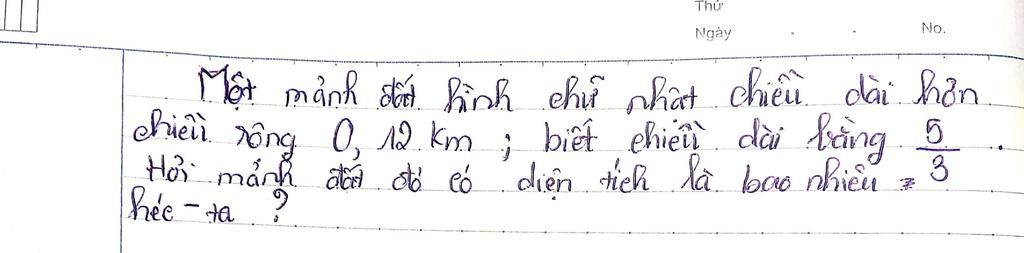 Thứ
Ngày . . No.
Một mảnh đất hình chữ nhật chiều dài hơn
chiều rộng 0,12 km ; biết chiều dài bằng 5/3 .
Hỏi mảnh đất đó có diện tích là bao nhiêu
héc-ta ?